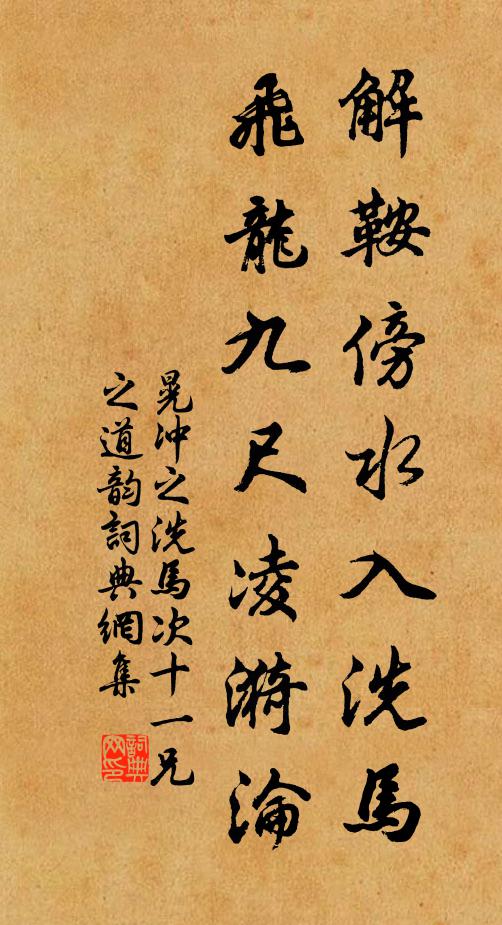 解鞍傍水入洗馬
飛龍九尺凌漪淪
晁冲之洗馬次十一兄
之道韵詞典網集
詞典网印